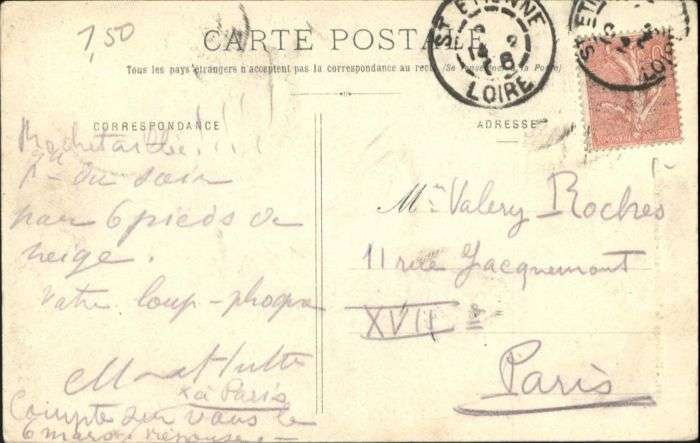 1,50
CARTE POSTALE
Tous les pays étrangers n'acceptent pas la correspondance au recto (Se renseigner à la Poste)
ST ETIENNE
LOIRE
CORRESPONDANCE
Rochetaillée!!!
du soir
par 6 pieds de
neige.
Votre loup-phoque
x à Paris
Compte sur vous le
6 mars. réponse. -
ADRESSE
Mr Valery Roches
11 rue Jacquemont
XVII e
Paris